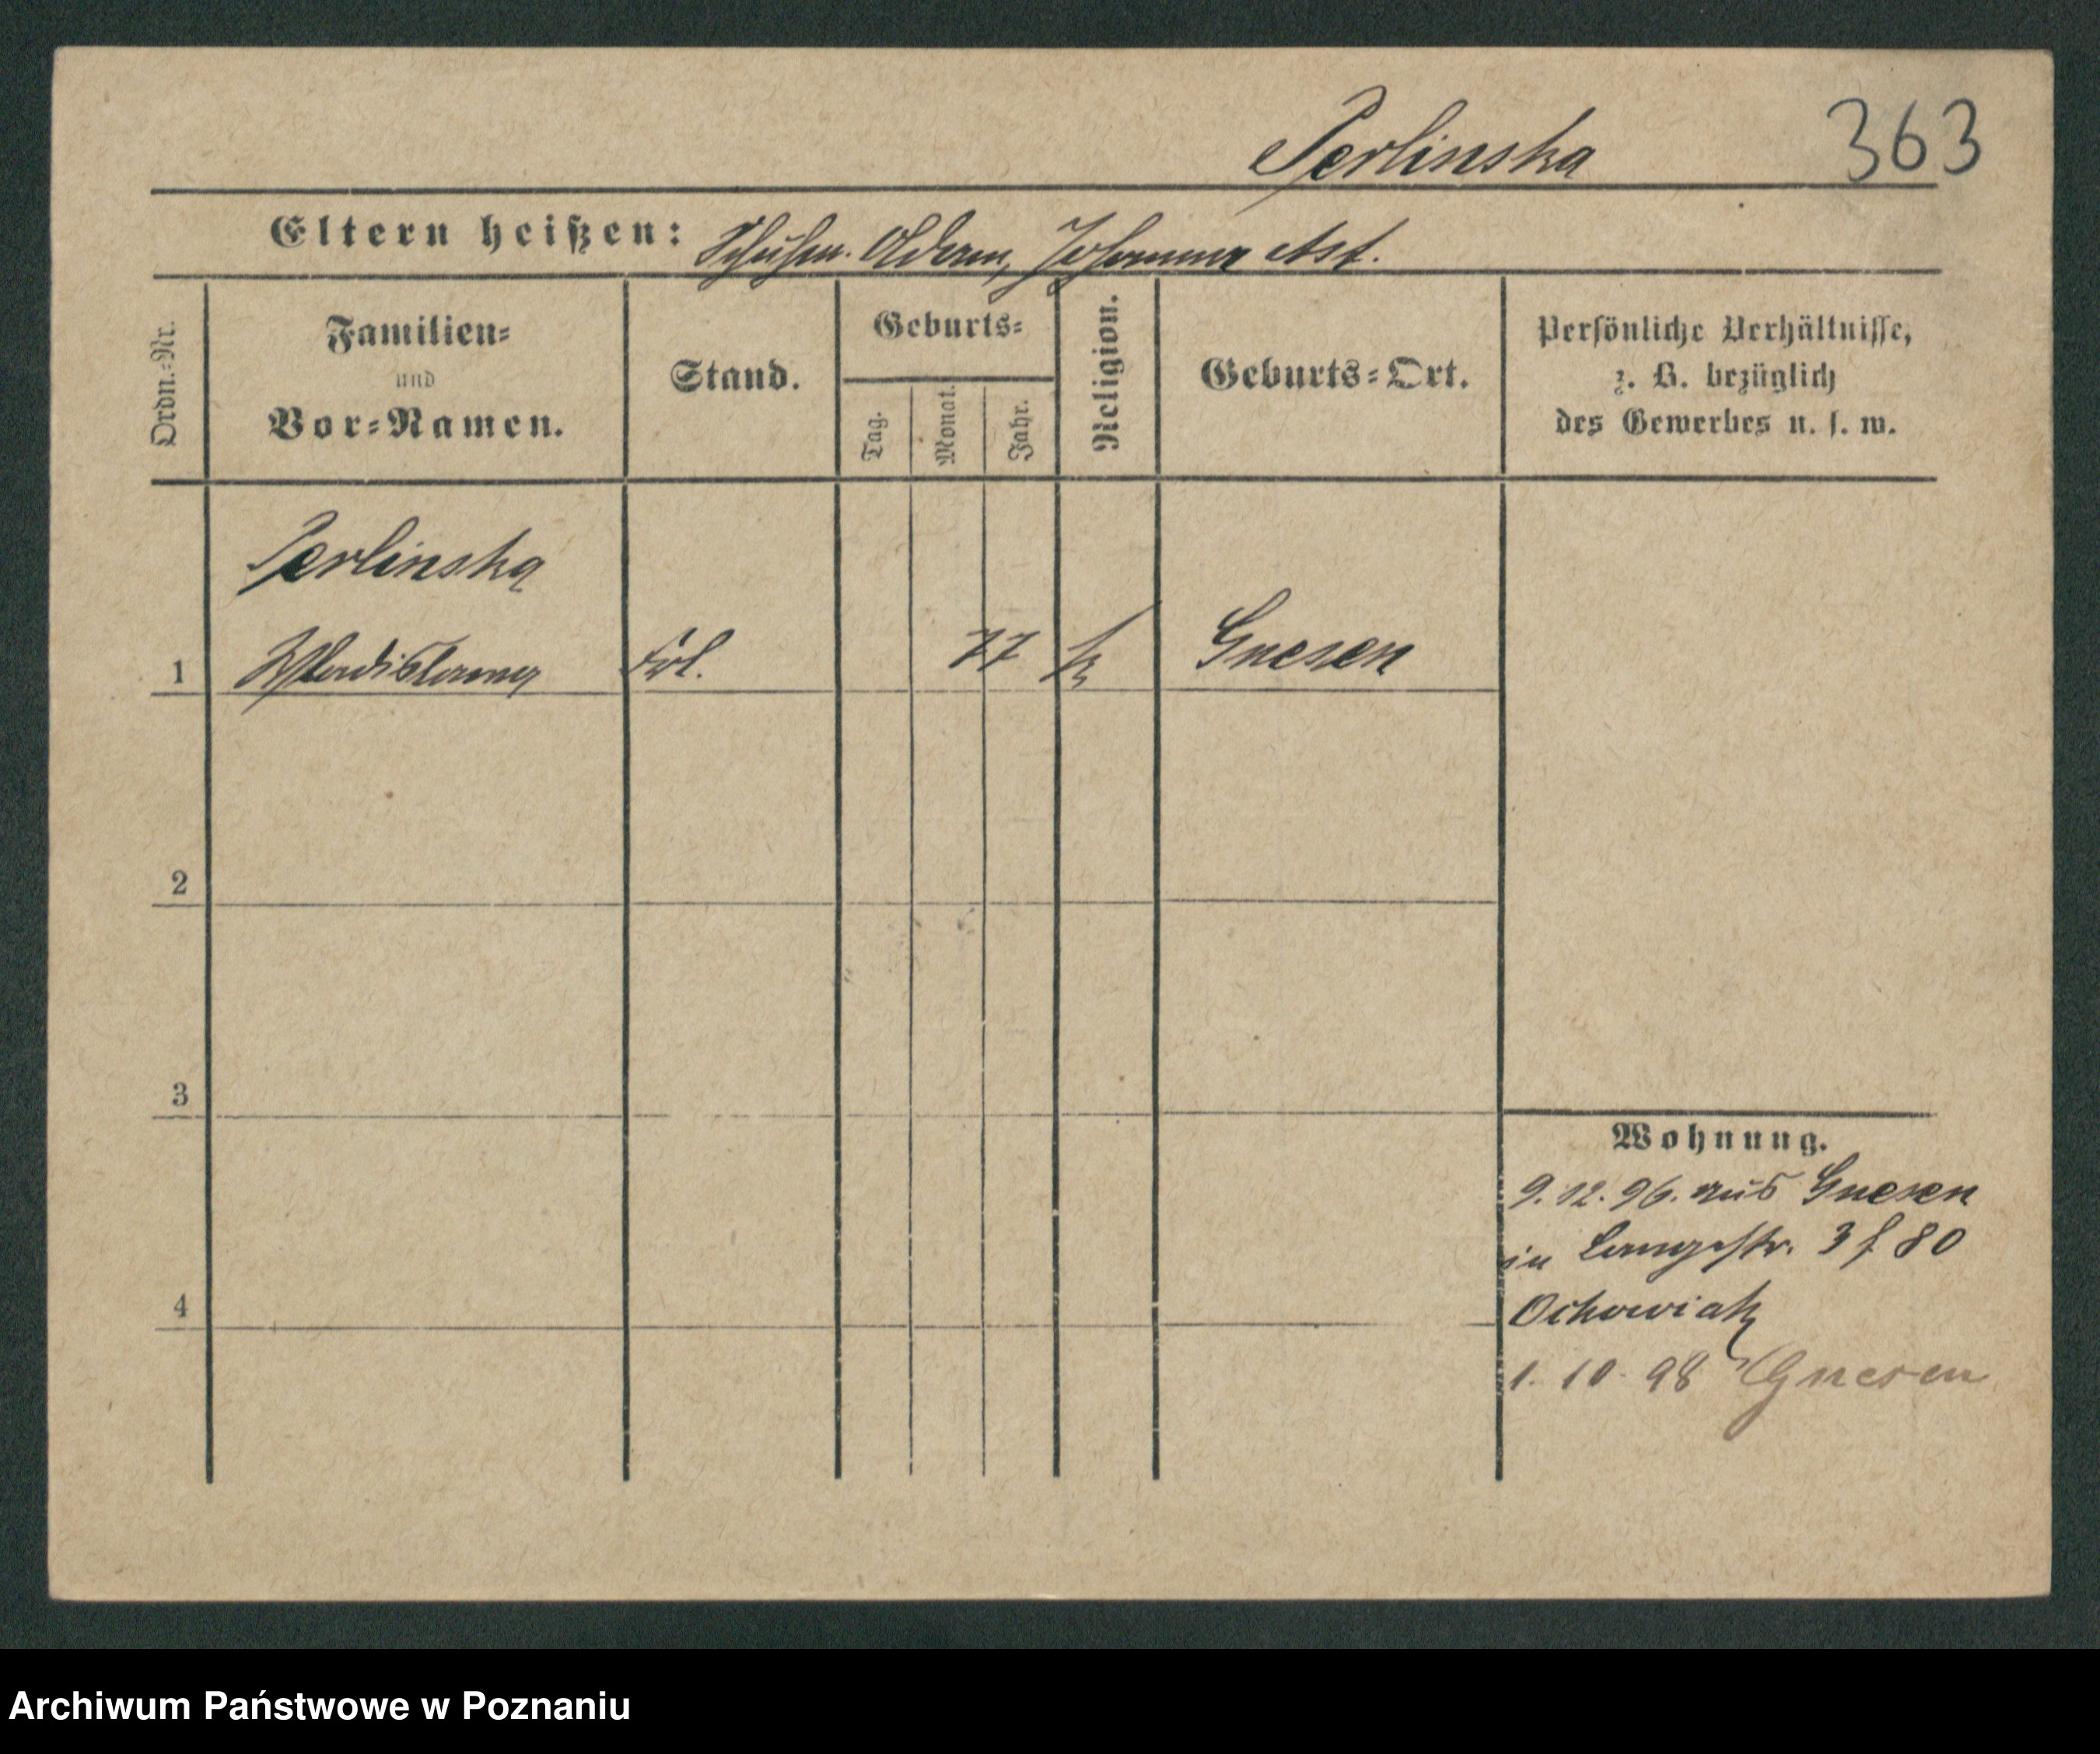 Perlinska 363
Eltern heißen: Schuhm. Adam, Johanna Ast.
Ordn.=Nr.
Familien=
und
Vor=Namen.
Stand.
Geburts=
Tag.
Monat.
Jahr.
Religion.
Geburts=Ort.
Persönliche Verhältnisse,
z. B. bezüglich
des Gewerbes u. s. w.
Perlinska
1 Wladislawa Frl. 77 k Gnesen
2
3
4
Wohnung.
9.12.96. aus Gnesen
in Langestr. 3 f 80
Ochowiak
1. 10. 98 Gnesen
Archiwum Państwowe w Poznaniu